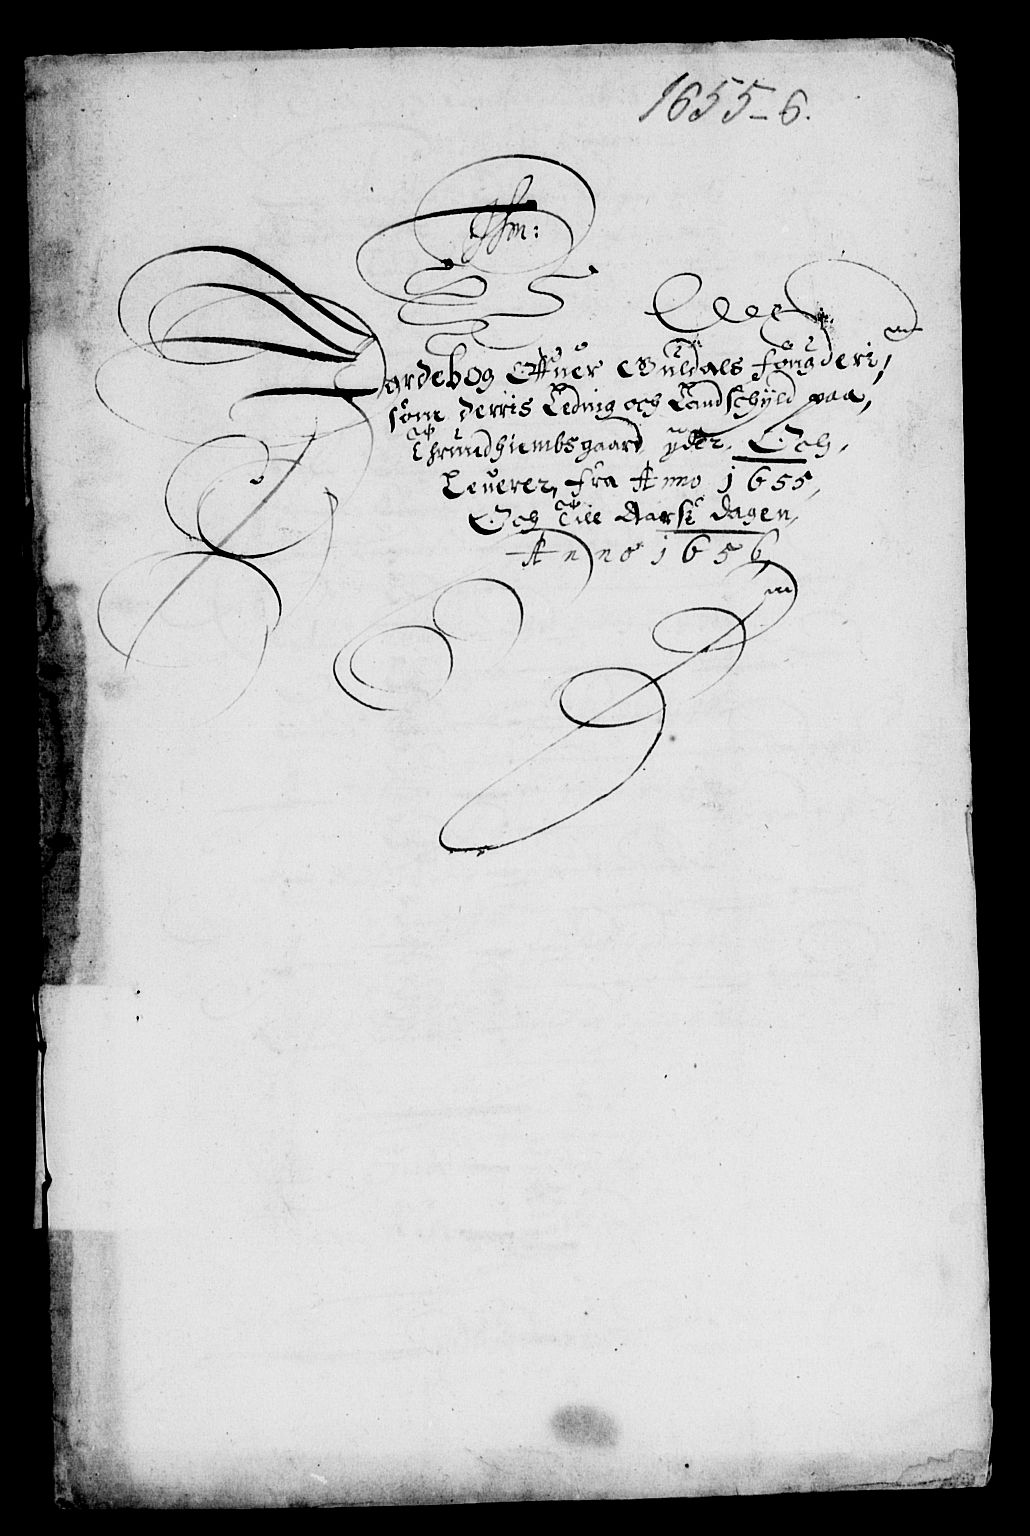 1655-6.
Jordebog Offuer Guldals fougderi,
som derris Leding och Landschyld paa,
Thrundhiembsgaard yder, Och,
Leuerer, fra Anno 1655,
Och Till Aarsz dagen,
Anno 1656,